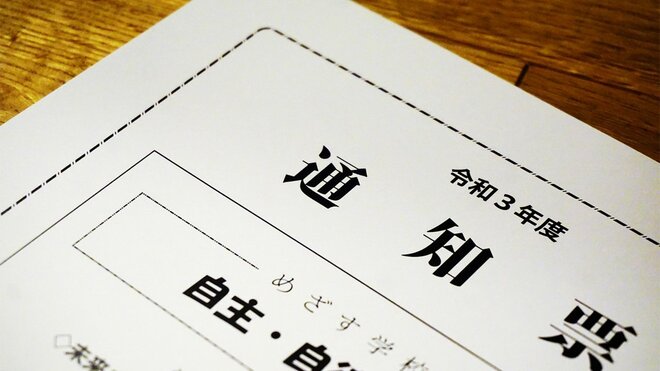 令和3年度
通知票
めざす学校
自主・自
◇未来